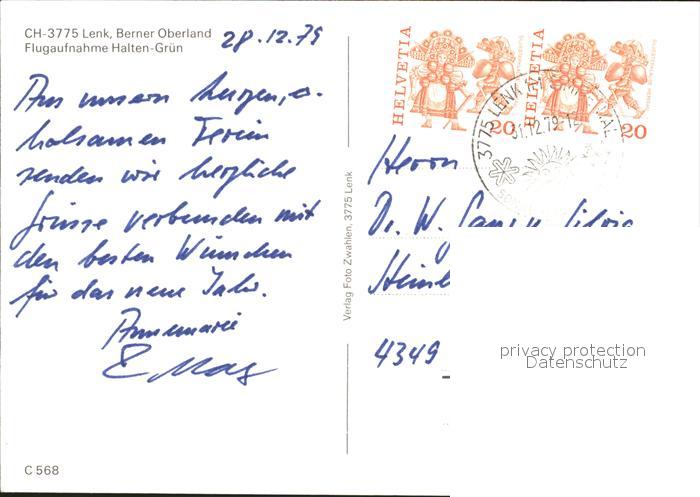 CH-3775 Lenk, Berner Oberland
Flugaufnahme Halten-Grün
28.12.79
Aus unsern kurzen, e-
holsamen Ferien
senden wir herzliche
Grüsse verbunden mit
den besten Wünschen
für das neue Jahr.
Annemarie
C 568
Verlag Foto Zwahlen, 3775 Lenk
HELVETIA
20
HELVETIA
20
3775 LENK
31.12.79-12
Herrn
Dr. W.
4349
privacy protection
Datenschutz